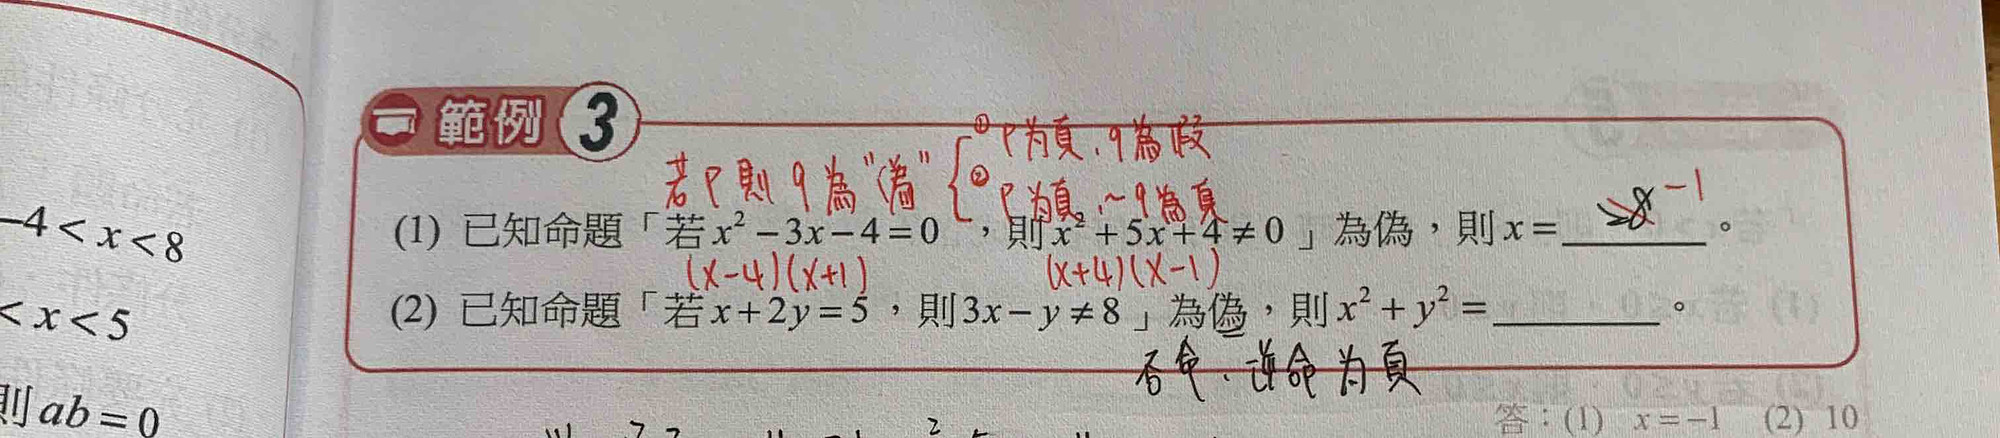 範例 3
若P則q為"偽" ①P为真,q為假
②P为真,~q為真
-4<x<8
(1) 已知命題「若x²-3x-4=0,則x²+5x+4≠0」為偽,則x=______。
-1
(x-4)(x+1) (x+4)(x-1)
(2) 已知命題「若x+2y=5,則3x-y≠8」為偽,則x²+y²=______。
<x<5
否命、逆命为真
則ab=0
答:(1) x=-1 (2) 10